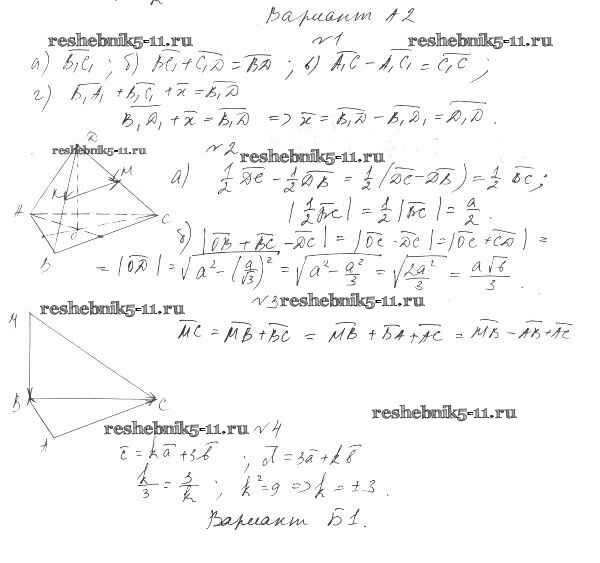 Вариант А2
reshebnik5-11.ru
reshebnik5-11.ru
№1
а) B₁C₁ ; б) BC₁ + C₁D = BD ; в) A₁C − A₁C₁ = C₁C ;
г) B₁A₁ + B₁C₁ + x̄ = B₁D
B₁D₁ + x̄ = B₁D => x̄ = B₁D − B₁D₁ = D₁D.
№2
reshebnik5-11.ru
reshebnik5-11.ru
D
M
K
A
C
O
B
а) 1/2 DC − 1/2 DB = 1/2 (DC − DB) = 1/2 BC ;
|1/2 BC| = 1/2 |BC| = a/2.
б) |OB + BC − DC| = |OC − DC| = |OC + CD| =
= |OD| = √(a² − (a/√3)²) = √(a² − a²/3) = √(2a²/3) = a√6/3 .
№3
reshebnik5-11.ru
reshebnik5-11.ru
M
B
C
A
MC = MB + BC = MB + BA + AC = MB − AB + AC
reshebnik5-11.ru
reshebnik5-11.ru
№4
c̄ = kā + 3b̄ ; d̄ = 3ā + kb̄
k/3 = 3/k ; k² = 9 => k = ±3.
Вариант Б1.